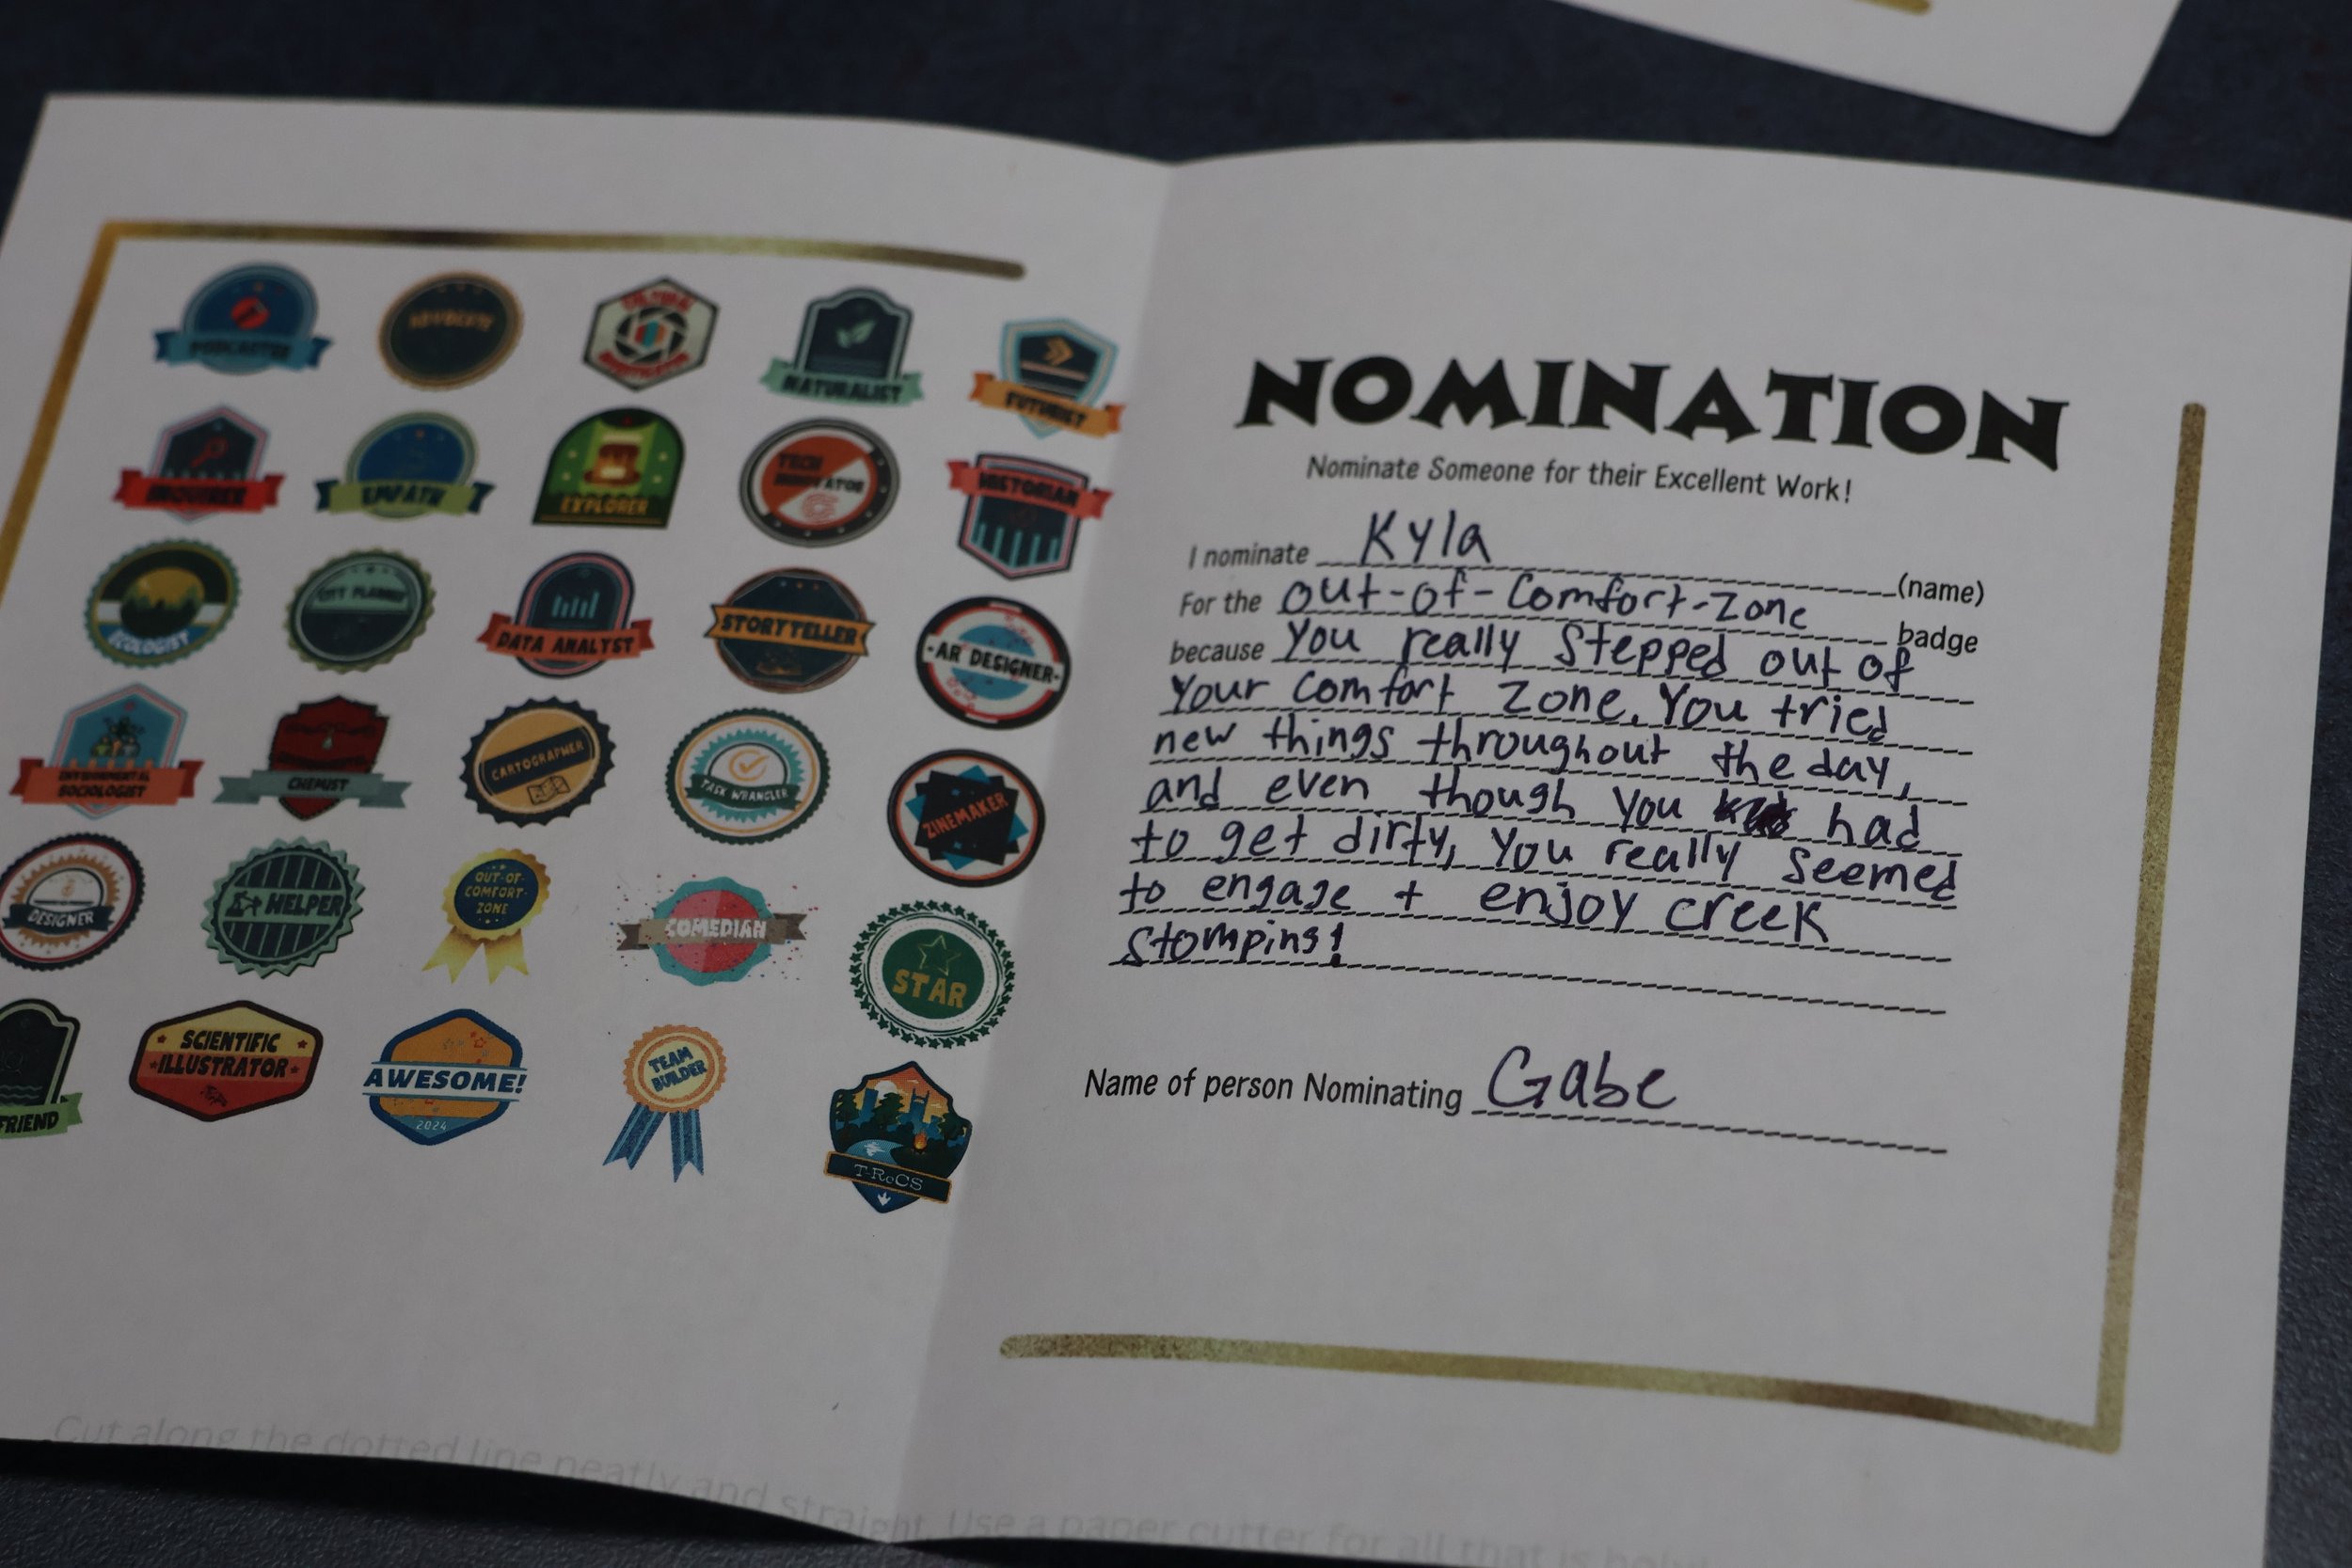 PODCASTER
ADVOCATE
CULTURAL
INVESTIGATOR
NATURALIST
FUTURIST
INQUIRER
EMPATH
EXPLORER
TECH
INNOVATOR
HISTORIAN
ECOLOGIST
CITY PLANNER
DATA ANALYST
STORYTELLER
AR DESIGNER
ENVIRONMENTAL
SOCIOLOGIST
CHEMIST
CARTOGRAPHER
TASK WRANGLER
ZINEMAKER
DESIGNER
HELPER
OUT-OF-
COMFORT-
ZONE
COMEDIAN
STAR
FRIEND
SCIENTIFIC
ILLUSTRATOR
AWESOME!
2024
TEAM
BUILDER
T-ReCS
Cut along the dotted line neatly and straight. Use a paper cutter for all that is holy!
NOMINATION
Nominate Someone for their Excellent Work!
I nominate Kyla (name)
For the Out-of-Comfort-Zone badge
because You really stepped out of
your comfort zone. You tried
new things throughout the day,
and even though you had
to get dirty, you really seemed
to engage + enjoy creek
stomping!
Name of person Nominating Gabe